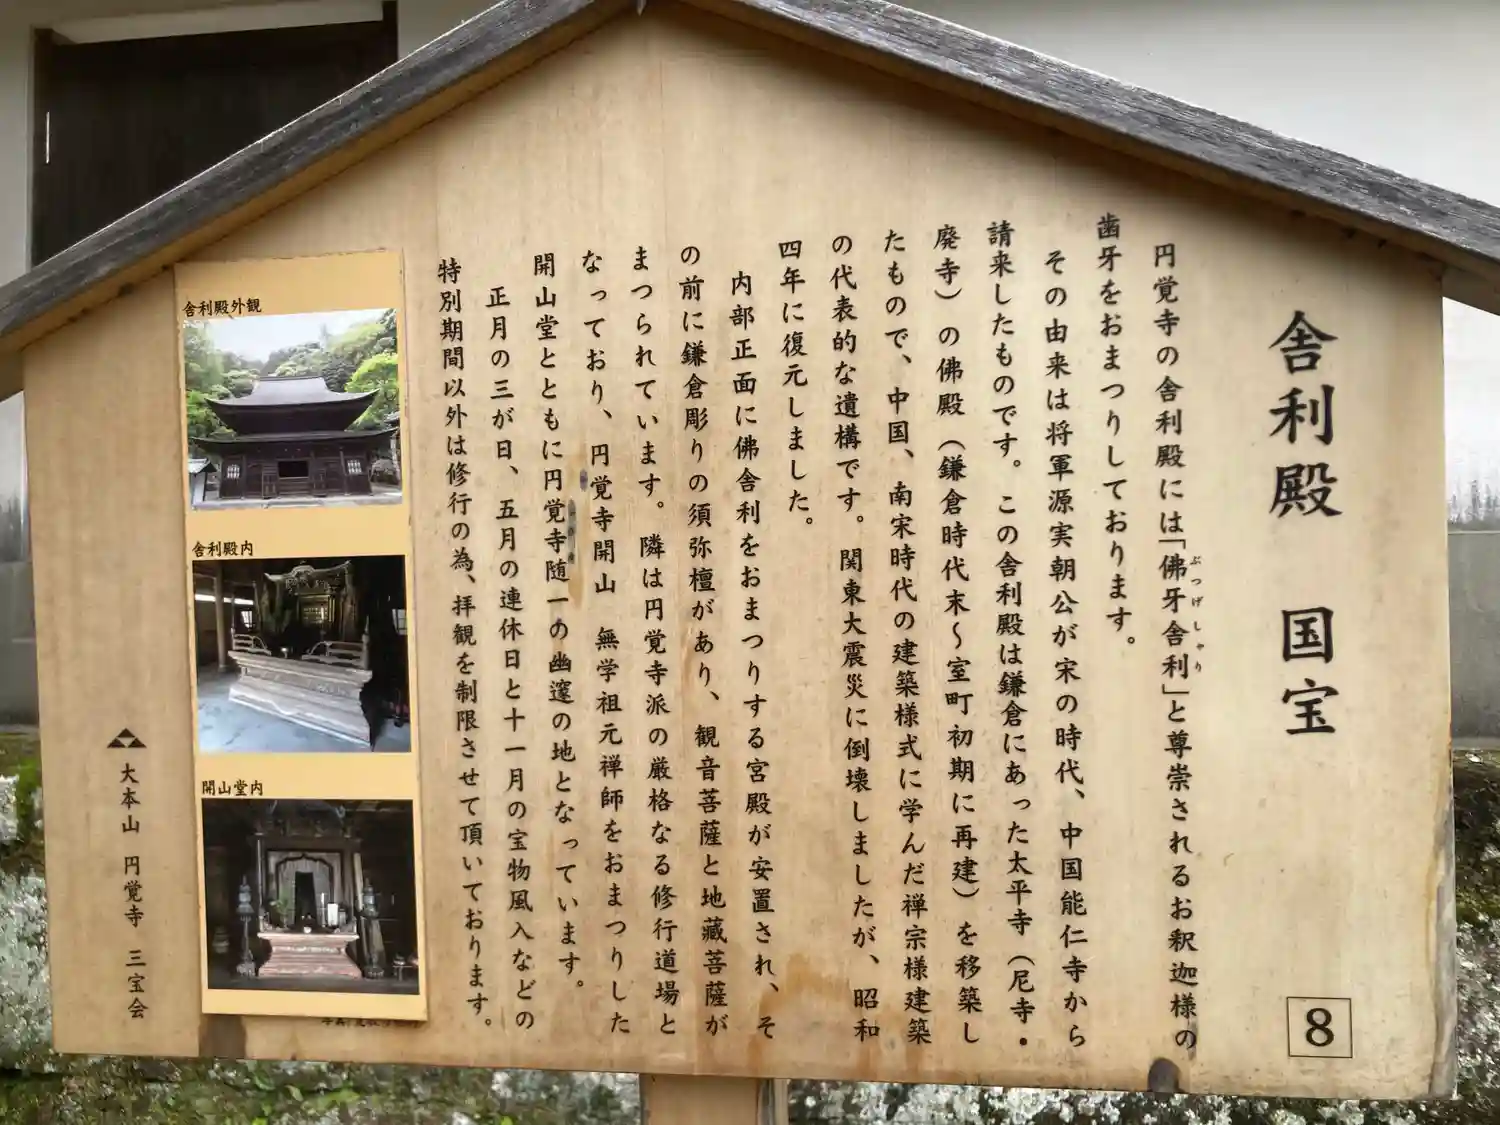 舎利殿 国宝
円覚寺の舎利殿には「佛牙舎利」と尊崇されるお釈迦様の
ぶつげしゃり
歯牙をおまつりしております。
その由来は将軍源実朝公が宋の時代、中国能仁寺から
請来したものです。この舎利殿は鎌倉にあった太平寺（尼寺・
廃寺）の佛殿（鎌倉時代末～室町初期に再建）を移築し
たもので、中国、南宋時代の建築様式に学んだ禅宗様建築
の代表的な遺構です。関東大震災に倒壊しましたが、昭和
四年に復元しました。
内部正面に佛舎利をおまつりする宮殿が安置され、そ
の前に鎌倉彫りの須弥檀があり、観音菩薩と地蔵菩薩が
まつられています。隣は円覚寺派の厳格なる修行道場と
なっており、円覚寺開山 無学祖元禅師をおまつりした
開山堂とともに円覚寺随一の幽邃の地となっています。
正月の三が日、五月の連休日と十一月の宝物風入などの
特別期間以外は修行の為、拝観を制限させて頂いております。
舎利殿外観
舎利殿内
開山堂内
大本山 円覚寺 三宝会
8